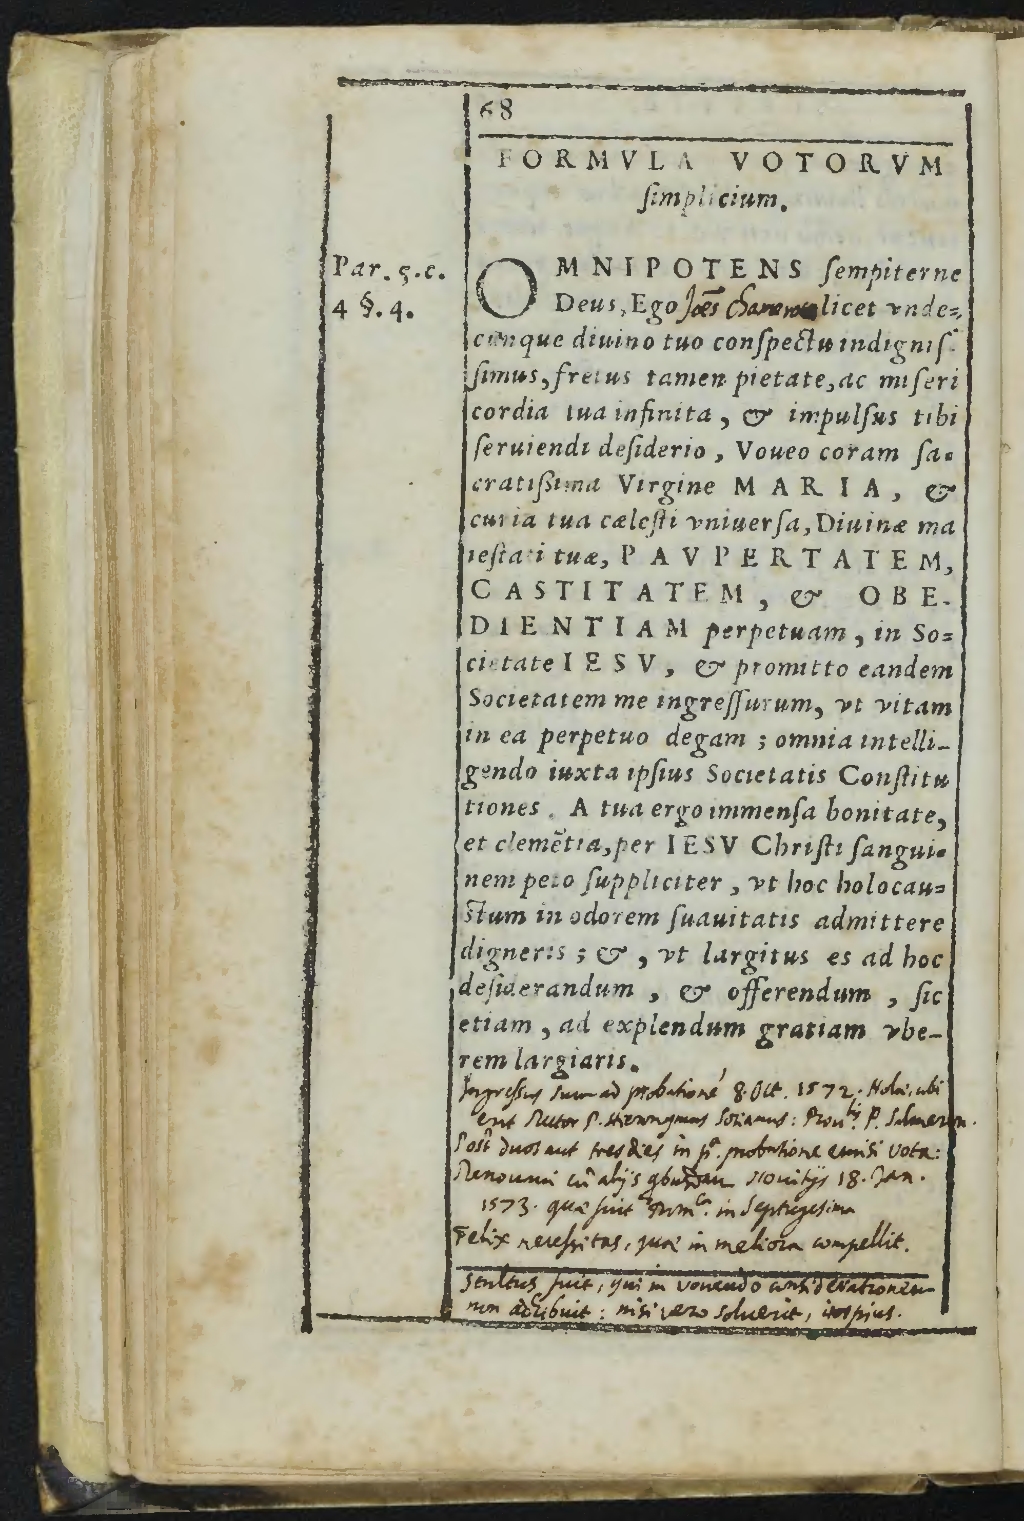 68
FORMVLA VOTORVM
ſimplicium.
Par. 5. c.
4 §. 4.
OMNIPOTENS ſempiterne
Deus, Ego Joẽs licet vnde=
cunque diuino tuo conſpectu indigniſ-
ſimus, fretus tamen pietate, ac miſeri
cordia tua infinita, & impulſus tibi
ſeruiendi deſiderio, Voueo coram ſa-
cratiſſima Virgine MARIA, &
curia tua cæleſti vniuerſa, Diuinæ ma
ieſtati tuæ, PAVPERTATEM,
CASTITATEM, & OBE-
DIENTIAM perpetuam, in So=
cietate IESV, & promitto eandem
Societatem me ingreſſurum, vt vitam
in ea perpetuo degam; omnia intelli-
gendo iuxta ipſius Societatis Conſtitu
tiones. A tua ergo immenſa bonitate,
et clemẽtia, per IESV Chriſti ſangui-
nem peto ſuppliciter, vt hoc holocau=
ſtum in odorem ſuauitatis admittere
digneris; &, vt largitus es ad hoc
deſiderandum, & offerendum, ſic
etiam, ad explendum gratiam vbe-
rem largiaris.
Ingressus sum ad probationẽ 8. Oct. 1572. Nolæ, ubi
erat Rector P. Hieronymus : Prou. P. Salmeron.
Post duos aut tres dies in pª. probatione emisi vota:
Renouaui cũ alijs Nouitijs 18. Jan.
1573. quæ fuit Domca. in Septuagesima
Felix necessitas, quæ in meliora compellit.
Stultus fuit, qui in vouendo considerationem
non adhibuit: nisi vero soluerit, impius.